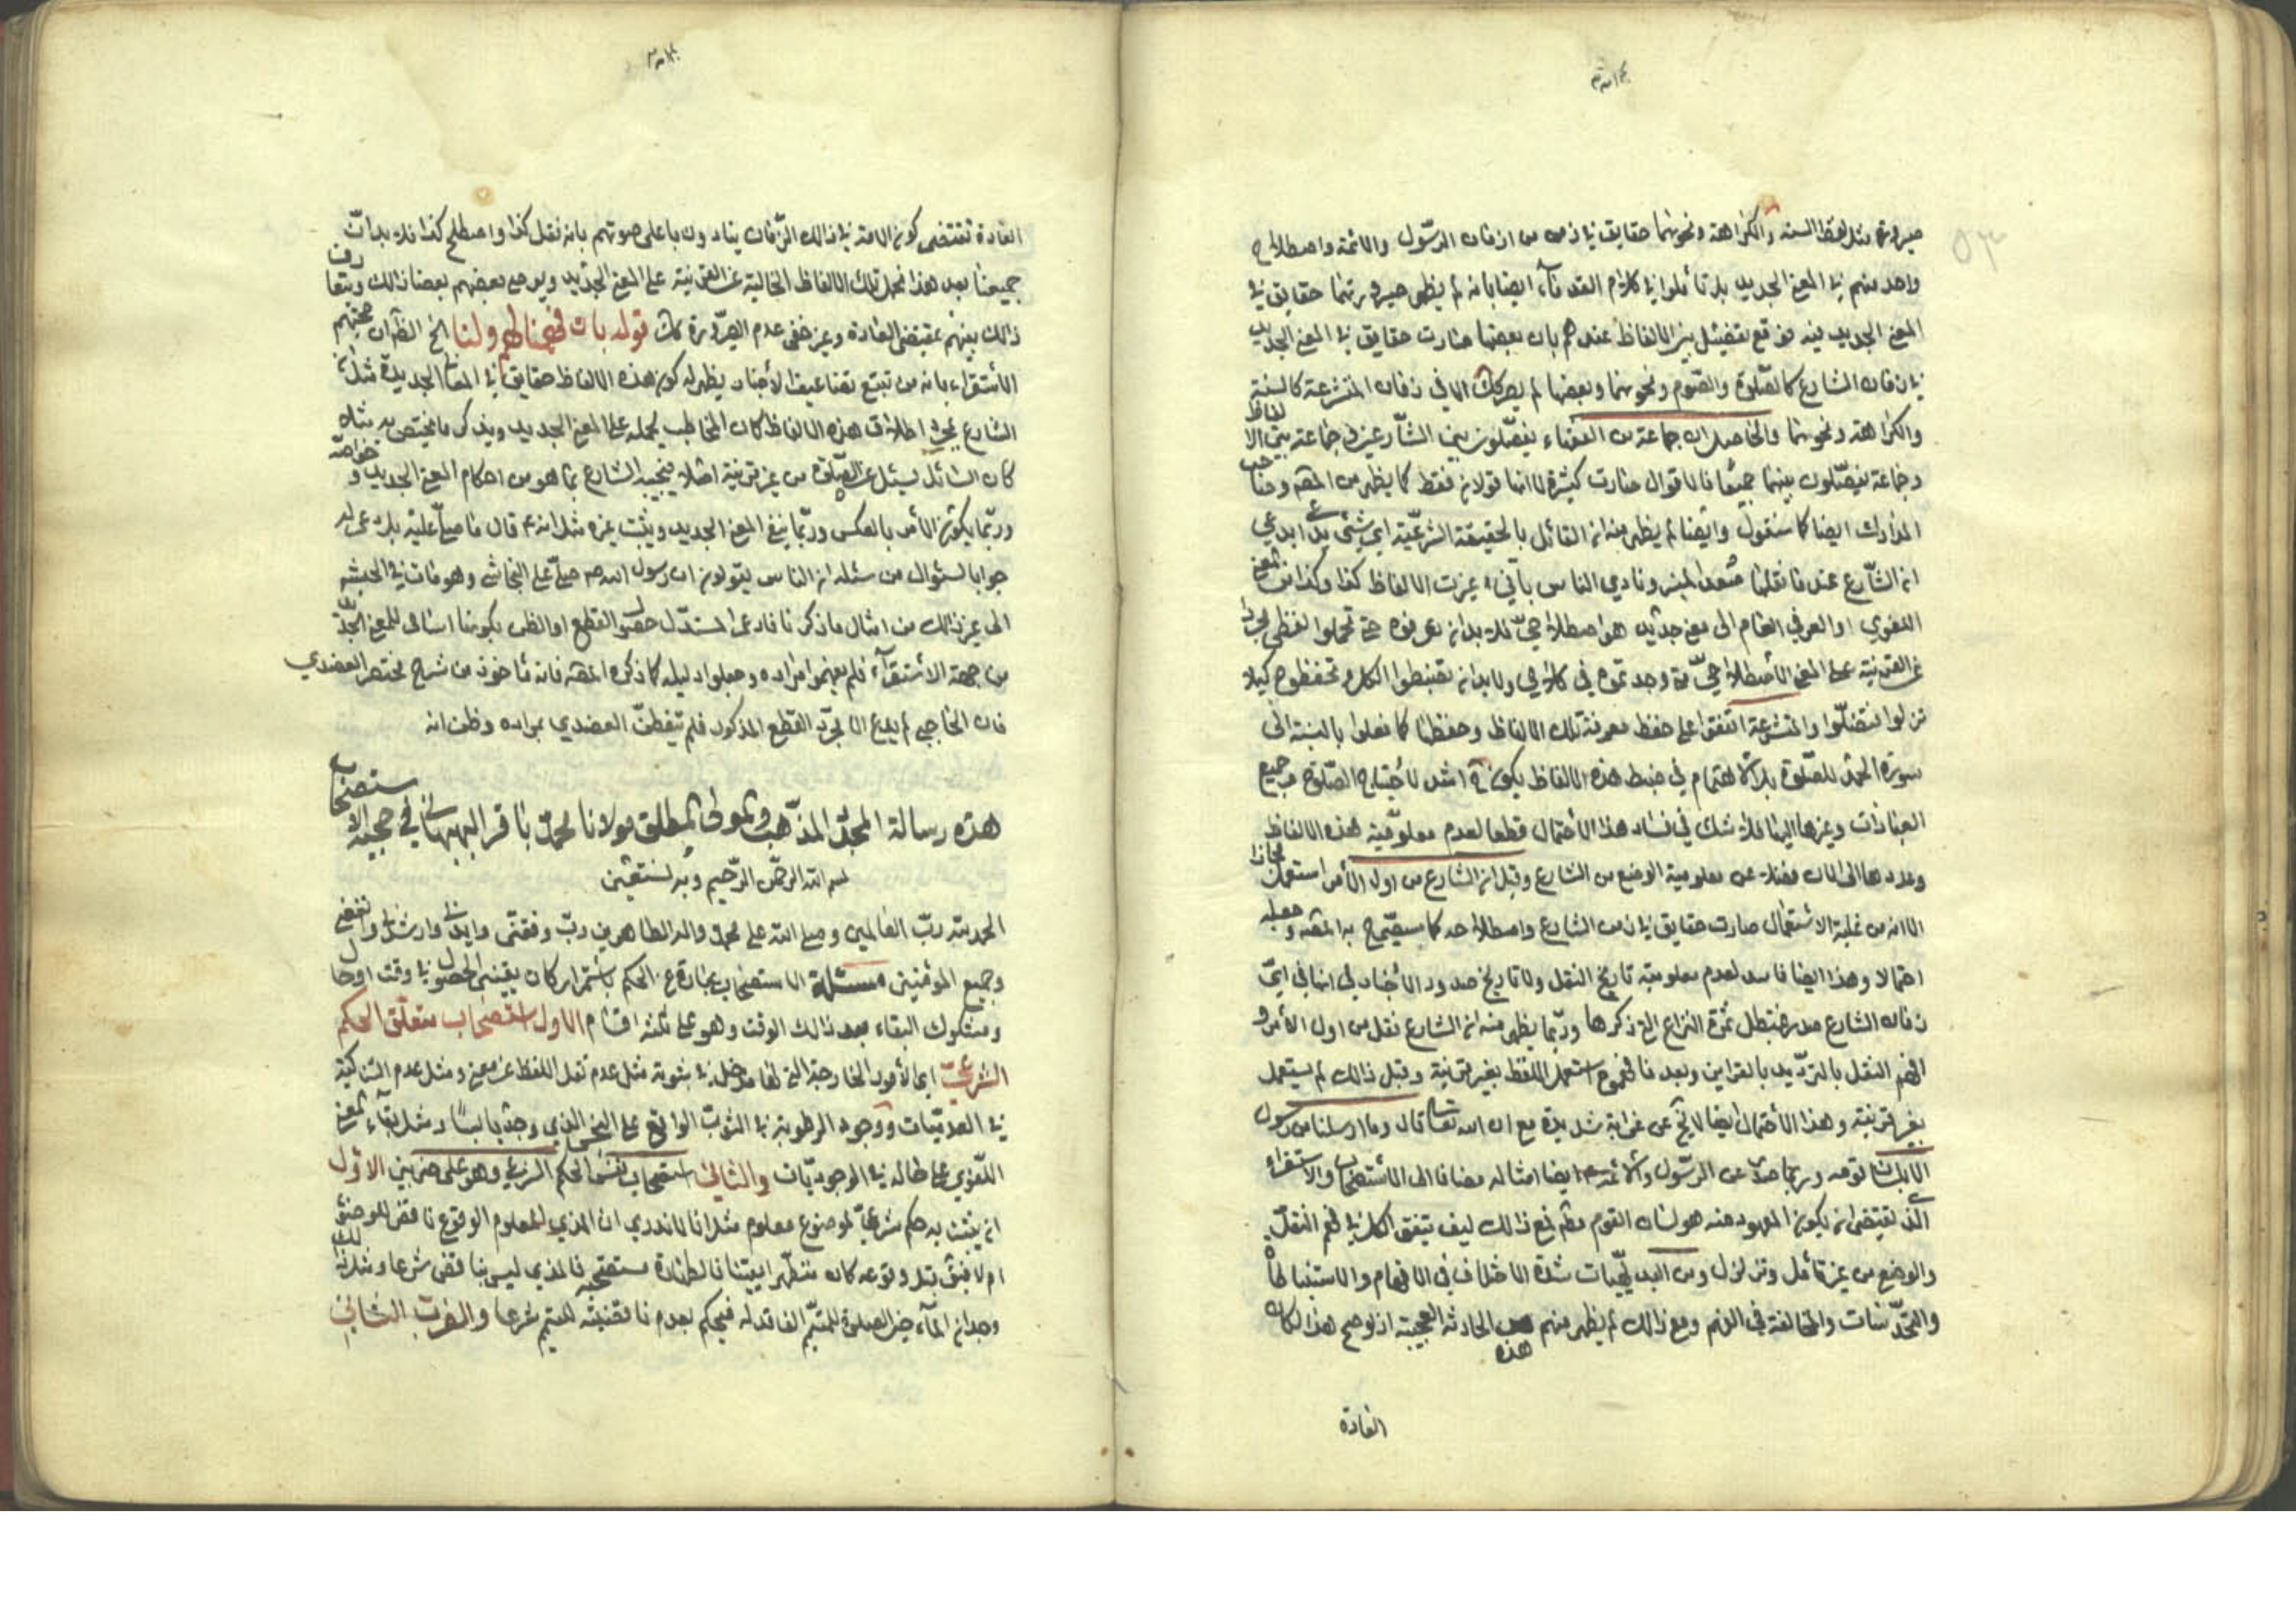 صيرورة مثل لفظ السنه والكراهة ونحوهما حقايق في زمن من ازمان الرسول والائمه واصطلاح
واحد منهم في المعنى الجديد بل تأملوا في كلام القدماء ايضا بانه لم يظهر صيرورتهما حقايق في
المعنى الجديد فيه فوقع تفصيل بين الالفاظ عندهم بان بعضها صارت حقايق في المعنى الجديد
في زمان الشارع كالصلوة والصوم ونحوهما وبعضها لم يصر كك الا في زمان المتشرعة كالسنة
والكراهة ونحوهما والحاصل ان جماعة من الفقهاء يفصلون بين الشارعين وجماعة بين الالفاظ
وجماعة يفصلون بينهما جميعا فالاقوال صارت كثيرة لا انها قولان فقط كما يظهر من المص وصاحب
المدارك ايضا كما سنقول وايضا لم يظهر منه ان القائل بالحقيقة الشرعية اي شئ يدعي ايدعي
ان الشارع عند ما نقلها صعد المنبر ونادي الناس باني غيرت الالفاظ كذا وكذا من المعنى
اللغوي او العرفي العام الى معنى جديد هو اصطلاحي فلابد ان تعرفوه حتى تحملوا لفظي مجردا
عن القرينة على المعنى الاصطلاحي متى وجدتموه في كلامي ولابد ان تضبطوا الكل وتحفظوه كيلا
تزلوا فتضلوا والمتشرعة اتفقوا على حفظ معرفة تلك الالفاظ وحفظها كما فعلوا بالنسبة الى
سورة الحمد للصلوة بل الاهتمام في ضبط هذه الالفاظ يكون اشد لاحتياج الصلوة وجميع
العبادات وغيرها اليها فلا شك في فساد هذا الاحتمال قطعا لعدم معلومية هذه الالفاظ
وعددها الى الان فضلا عن معلومية الوضع من الشارع وقيل ان الشارع من اول الامر استعمل مجازا
الا انه من غلبة الاستعمال صارت حقايق في زمن الشارع واصطلاحه كما سيصرح به المص وجعله
احتمالا وهذا ايضا فاسد لعدم معلومية تاريخ النقل ولا تاريخ صدور الاخبار في انها في اي
زمان الشارع صدر فتبطل ثمرة النزاع التي ذكرها وربما يظهر منه ان الشارع نقل من اول الامر و
افهم النقل بالترديد بالقراين وبعد ما فهموه استعمل اللفظ بغير قرينة وقبل ذالك لم يستعمل
بغير قرينة وهذا الاحتمال ايضا لا يخ عن غرابة شديدة مع ان الله تعالى قال وما ارسلنا من رسول
الا بلسان قومه وربما صدر عن الرسول والائمه ع ايضا امثاله مضافا الى الاستصحاب والاستقراء
الذي يقتضي ان يكون المعهود منه هو لسان القوم ومع ذالك كيف يتفق الكل في فهم النقل
والوضع من غير تأمل وتزلزل ومن البديهيات شدة الاختلاف في الافهام والاستنباط
والتحدسات والمخالفة في الفهم ومع ذالك لم يظهر منهم هذه الحادثة العجيبة اذ لو صح هذا لكان
العادة
العادة تقتضي كون الامة في ذالك الزمان ينادون باعلى صوتهم بانه نقل كذا واصطلح كذا فلابد ان
جميعنا بعد هذا نحمل تلك الالفاظ الخالية عن القرينة على المعنى الجديد ويوصي بعضهم بعضا ذالك ويتعارف
ذالك بينهم بمقتضى العادة وغير خفي عدم الضرورة كك قوله بات فهمنا لهم ولنا الخ الظ ان حجتهم
الاستقراء بانه من تتبع تضاعيف الاخبار يظهر له كون هذه الالفاظ حقايق في المعاني الجديدة مثل ان
الشارع بمجرد اطلاق هذه الالفاظ كان المخاطب يحمله على المعنى الجديد ويذكر ما يختص به مثلا
كان السائل يسئل عن الصلوة من غير قرينة اصلا فيجيبه الشارع بما هو من احكام المعنى الجديد و خواصه
وربما يكون الامر بالعكس وربما ينفي المعنى الجديد ويثبت غيره مثل انه ع قال ما صلى عليه بل دعى له
جوابا لسئوال من سئله ان الناس يقولون ان رسول الله ص صلى على النجاشي وهو مات في الحبشه
الى غير ذالك من امثال ما ذكرنا فادعى المستدل حصول القطع او الظن بكونها اسامي للمعنى الجديد
من جهة الاستقراء فلم يفهموا مراده وجعلوا دليله كما ذكره المص فانه مأخوذ من شرح مختصر العضدي
فان الحاجبي لم يدع الا مجرد القطع المذكور فلم يتفطن العضدي بمراده وظن انه
هذه رسالة المجدد المذهب والمولى المطلق مولانا محمد باقر البهبهاني في حجية الاستصحاب
بسم الله الرحمن الرحيم وبه نستعين
الحمد لله رب العالمين وصلى الله على محمد واله الطاهرين رب وفقني وايدني وارشدني وانفعني
وجميع المؤمنين مسئلة الاستصحاب عبارة عن الحكم باستمرار كان يقيني الحصول في وقت او حال
ومشكوك البقاء بعد ذالك الوقت وهو على ثلثه اقسام الاول استصحاب متعلق الحكم
الشرعي اي الامور الخارجة التي لها مدخل في ثبوته مثل عدم نقل اللفظ عن معنى ومثل عدم التذكية
في العدميات ووجود الرطوبة في الثوب الواقع على النجس الذي وجد يابسا ومثل بقاء المعنى
اللغوي على حاله في الوجوديات والثاني استصحاب نفس الحكم الشرعي وهو على ضربين الاول
ان يثبت به حكم شرعي لموضوع معلوم مثلا انا لا ندري ان المذي المعلوم الوقوع ناقض للوضوء
ام لا فنقول قبل وقوعه كان متطهرا يقينا فالطهارة مستصحبه فالمذي ليس بناقض شرعا ومثل ذلك
وجدان الماء حين الصلوة للمتيمم الفاقد له فيحكم بعدم ناقضيته للتيمم شرعا والضرب الثاني